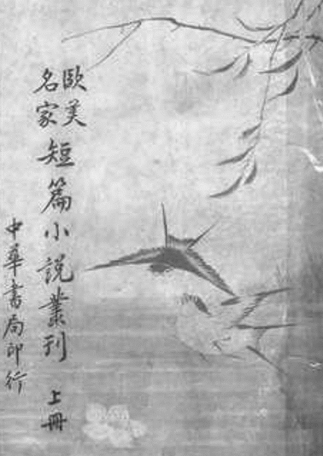 歐美
名家
短篇小説叢刊
上冊
中華書局印行